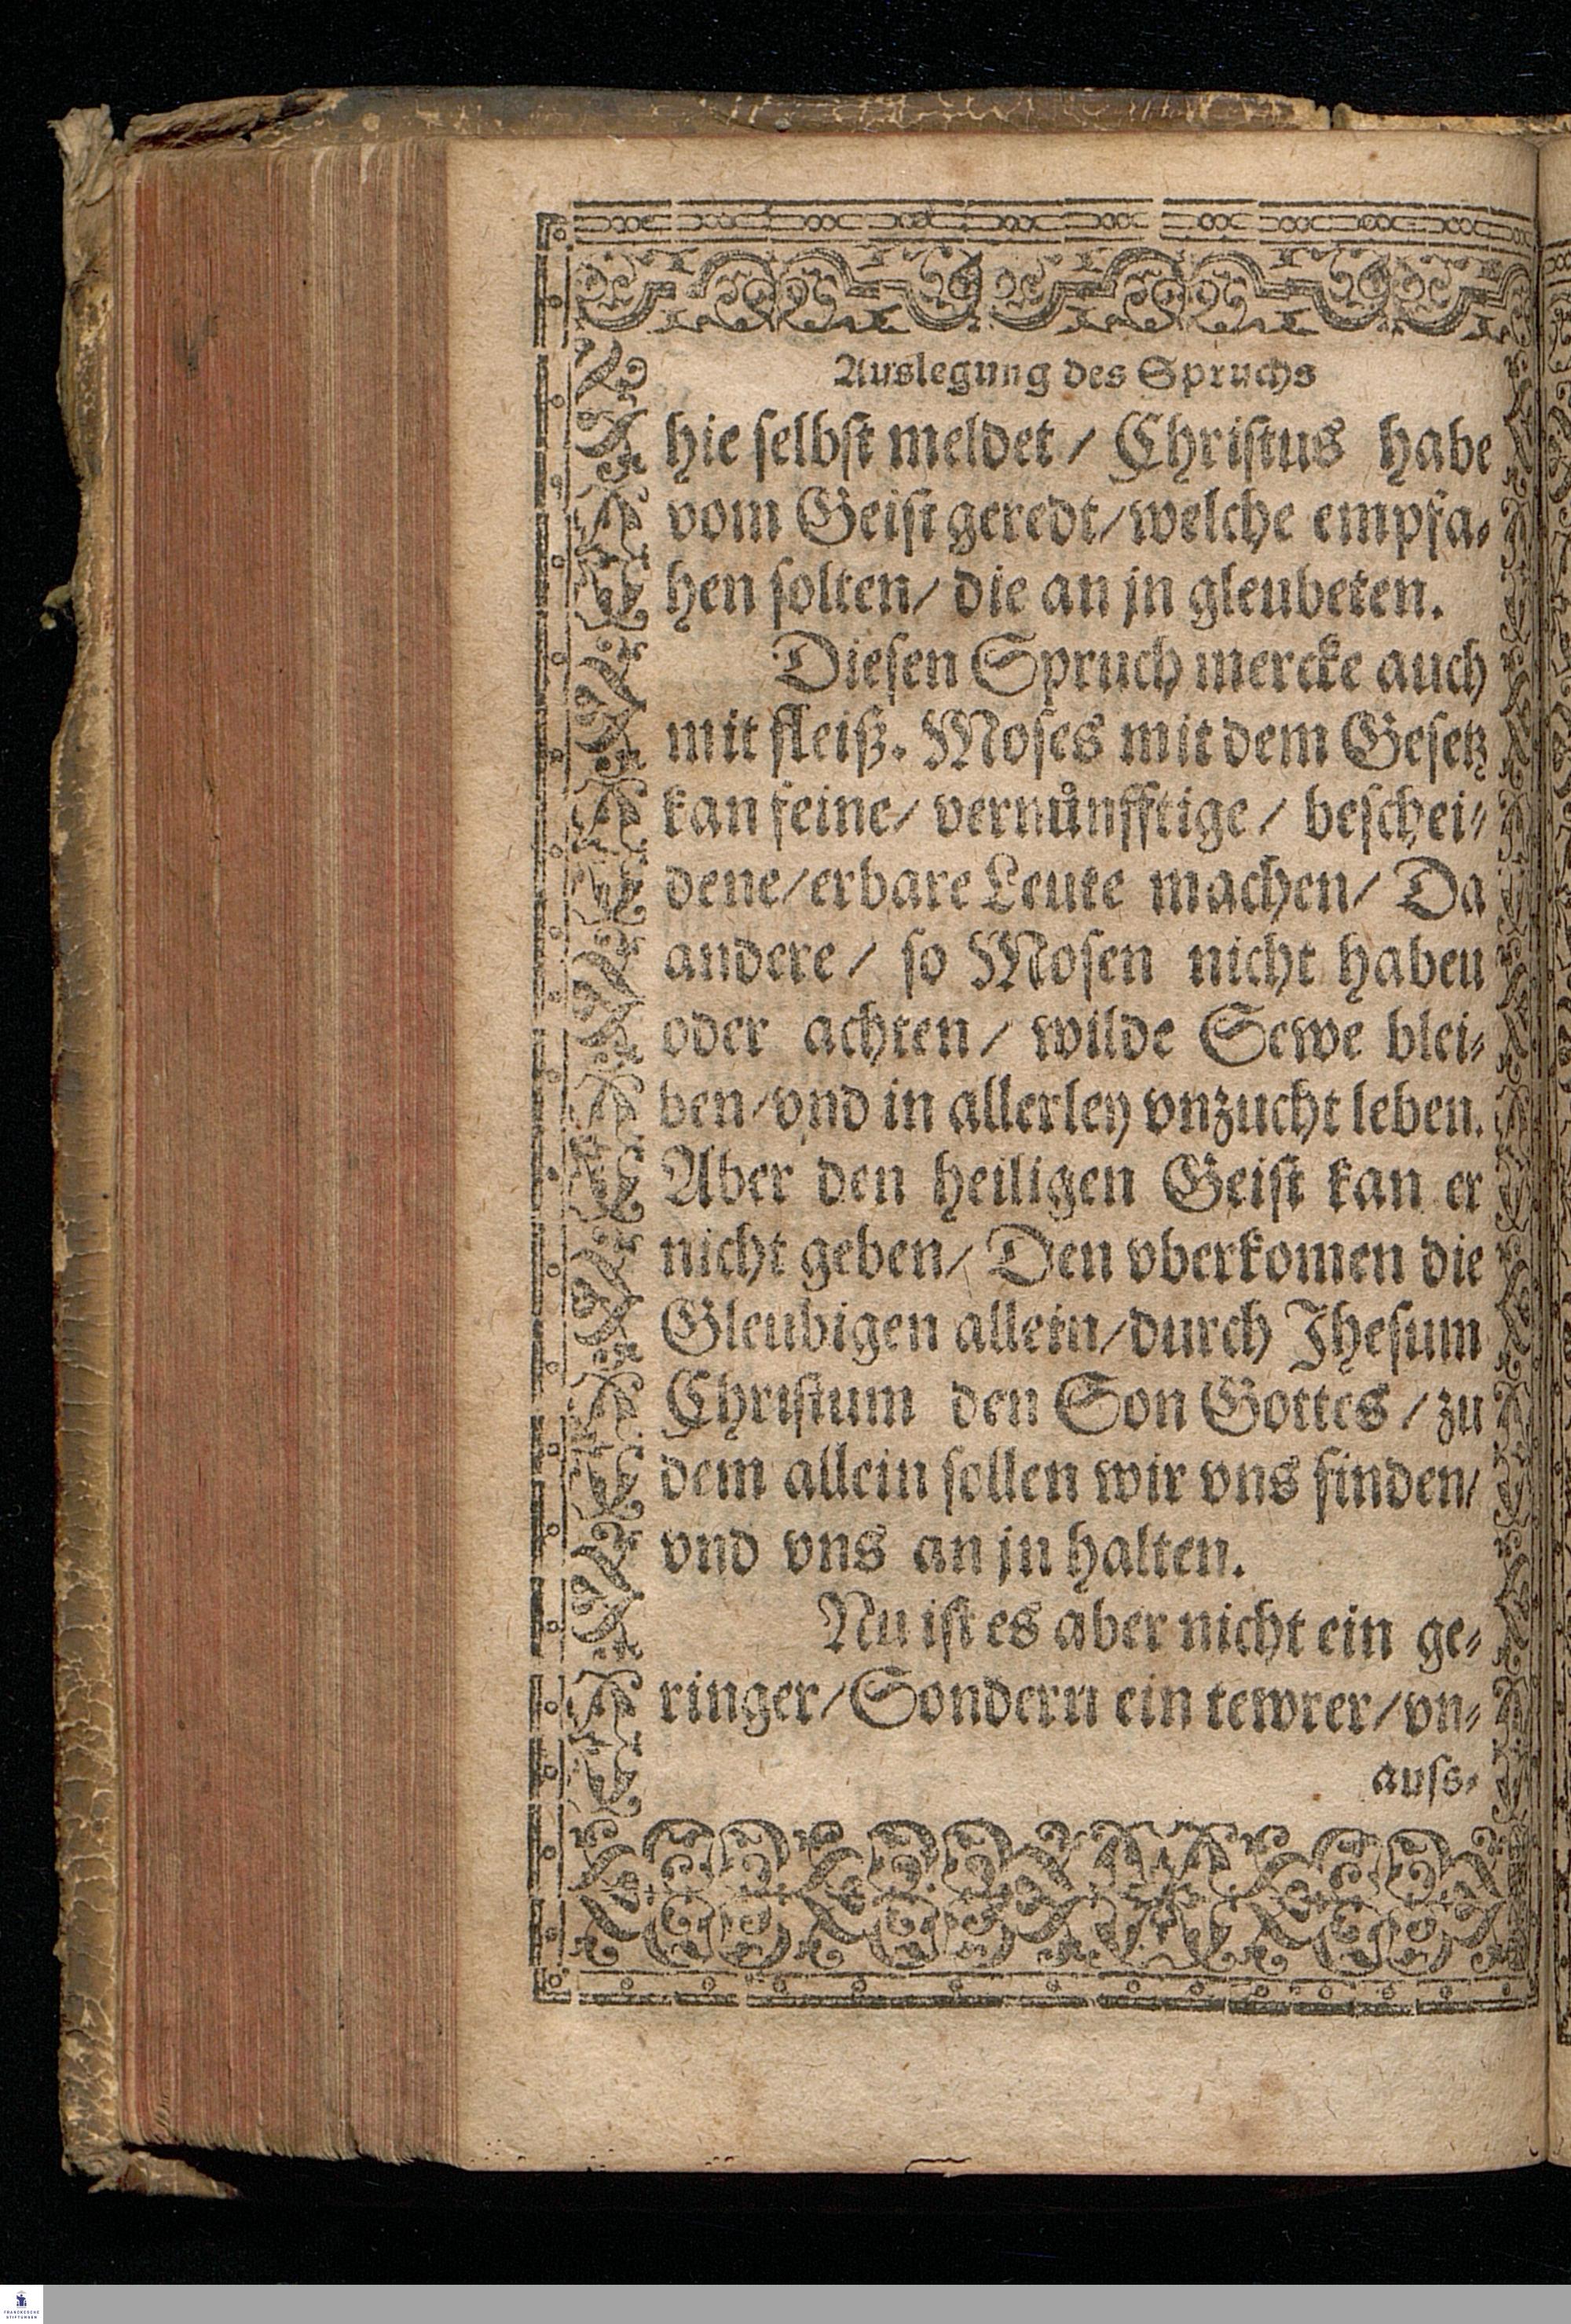 Auslegung des Spruchs
hie ſelbſt meldet / Chriſtus habe
vom Geiſt geredt / welche empfa⸗
hen ſolten / die an jn gleubeten.
Dieſen Spruch mercke auch
mit fleiß. Moſes mit dem Geſetz
kan feine / vernuͤnfftige / beſchei⸗
dene / erbare Leute machen / Da
andere / ſo Moſen nicht haben
oder achten / wilde Sewe blei⸗
ben / vnd in allerley vnzucht leben.
Aber den heiligen Geiſt kan er
nicht geben / Den vberkomen die
Gleubigen allein / durch Jheſum
Chriſtum den Son Gottes / zu
dem allein ſollen wir vns finden /
vnd vns an jn halten.
Nu iſt es aber nicht ein ge⸗
ringer / Sondern ein tewrer / vn⸗
auſs⸗
FRANCKESCHE
STIFTUNGEN